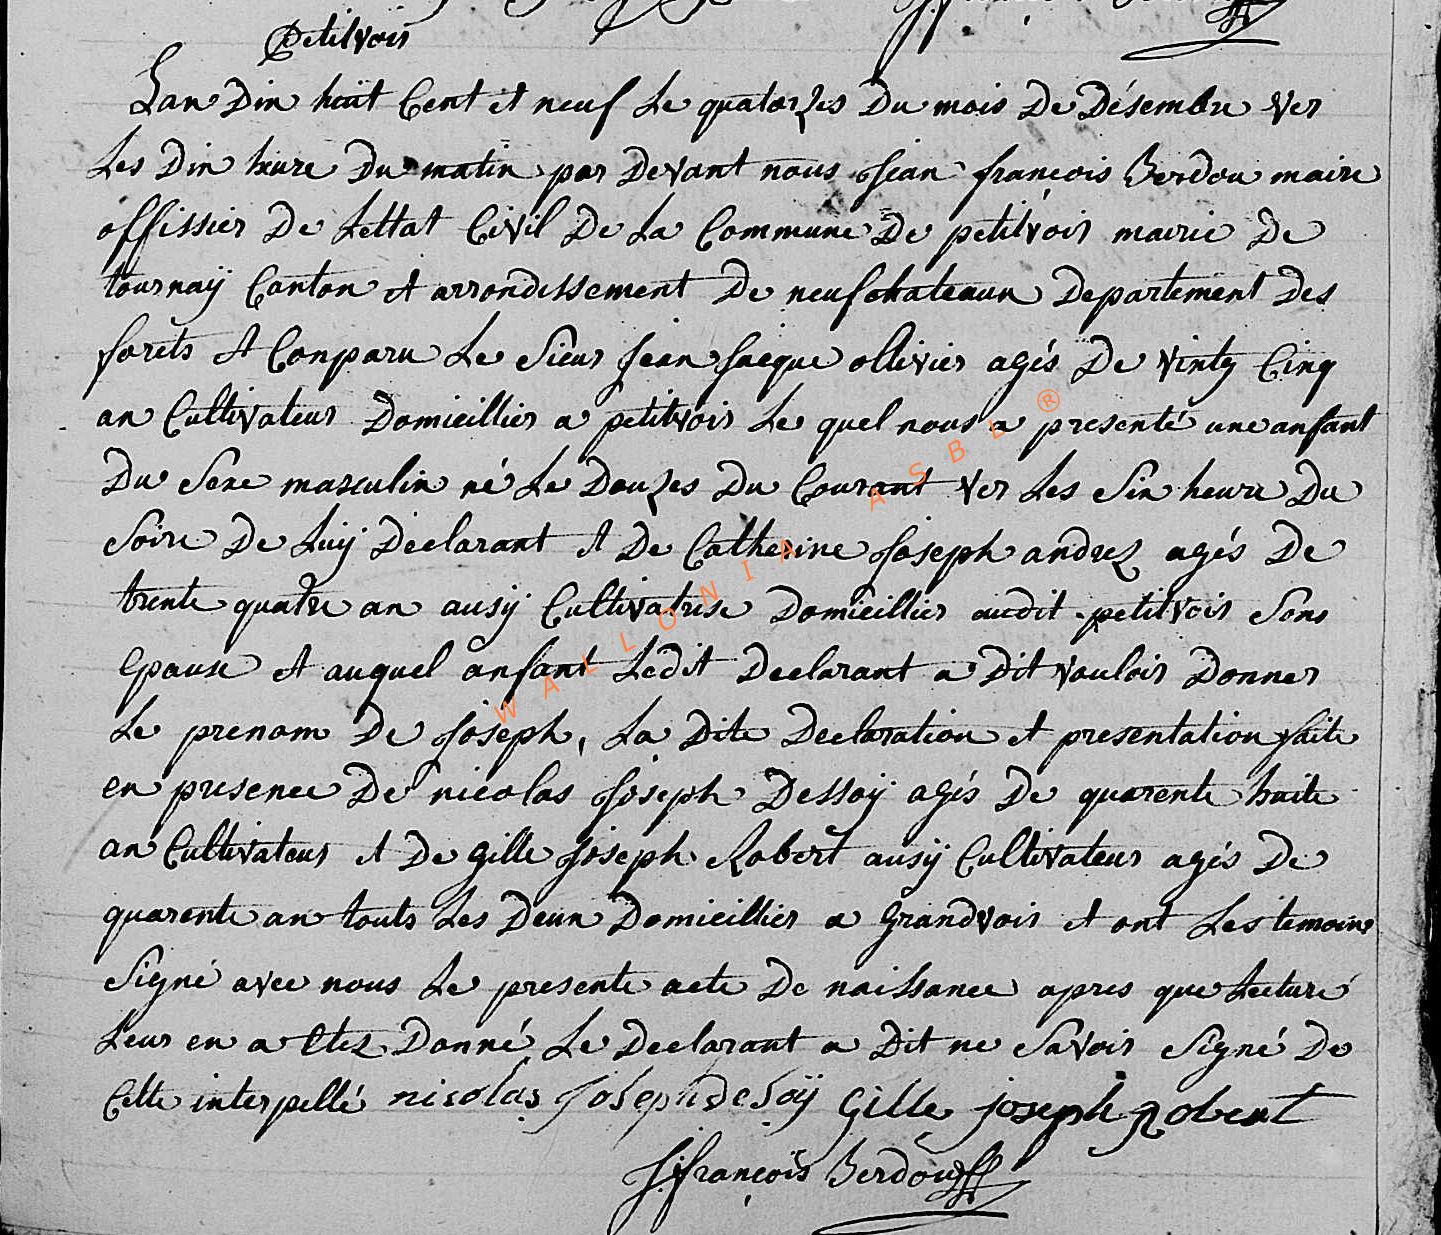 Petitvoir
Lan Dix huit Cent et neuf Le quatorzes Du mois De Désembre ver
Les Dix heure Du matin par Devant nous Jean françois Berdou maire
offissier De Lettat Civil De La Commune De petitvoir mairie De
tournaÿ Canton et arrondissement De neufchateaux Departement Des
forêts et Conparu Le Sieur Jean Jacque ollivier agés De vintg Cinq
an Cultivateur Domicillier a petitvoir Le quel nous a presenté une anfant
Du Sexe masculin né Le Douzes Du Courant ver Les Six heure Du
Soire De Luÿ Déclarant et De Catherine Joseph andrez agés De
trente quatre an ausÿ Cultivatrise Domicillier audit petitvoir Son
Epouse et auquel anfant Ledit Declarant a Dit vouloir Donner
Le prenom De Joseph, La Dite Declaration et presentation faite
en presence De nicolas Joseph Dessoÿ agés De quarente huite
an Cultivateur et De gille Joseph Robert ausÿ Cultivateur agés De
quarente an touts Les Deux Domicillier a grandvoir et ont Les temoins
Signé avec nous Le presente acte De naissance apres que Lecture
Leur en a Etez Donné Le Declarant a Dit ne Savoir Signé De
Cette interpellé nicolas Joseph desoÿ Gille joseph Robert
J: françois Berdou
WALLONIA ASBL ®